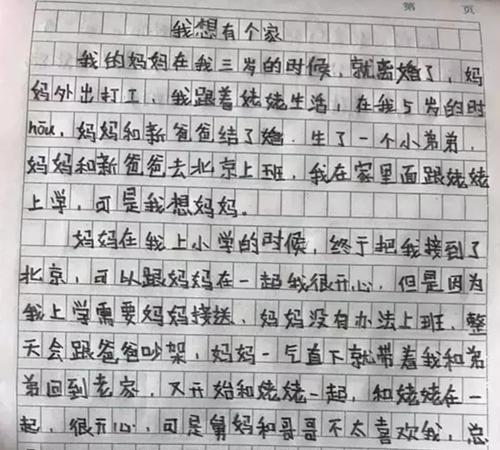 第 页
我想有个家
我的妈妈在我三岁的时候，就离婚了，妈
妈外出打工、我跟着姥姥生活，在我5岁的时
hōu，妈妈和新爸爸结了婚．生了一个小弟弟，
妈妈和新爸爸去北京上班，我在家里面跟姥姥
上学，可是我想妈妈。
妈妈在我上小学的时候，终于把我接到了
北京，可以跟妈妈在一起我很开心，但是因为
我上学需要妈妈接送、妈妈没有办法上班，整
天会跟爸爸吵架，妈妈一气直下就带着我和弟
弟回到老家，又开始和姥姥一起，和姥姥在一
起，很开心，可是舅妈和哥哥不太喜欢我，总